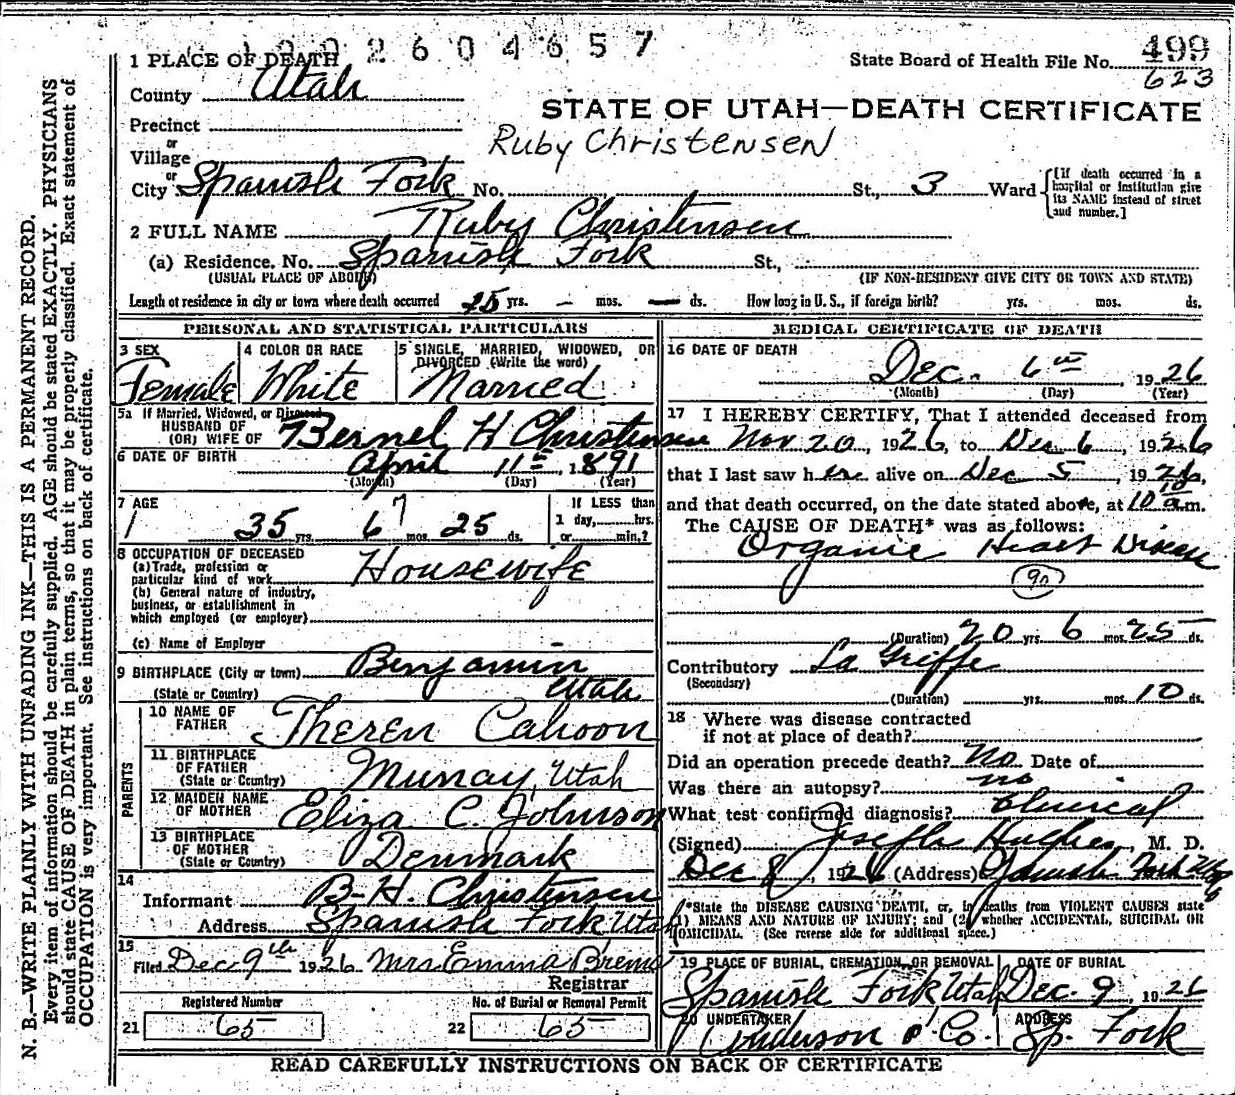 1002604657
1 PLACE OF DEATH
State Board of Health File No. 499
623
County Utah
STATE OF UTAH—DEATH CERTIFICATE
Precinct
Ruby Christensen
or
Village
or
City Spanish Fork No. St., 3 Ward
[If death occurred in a hospital or institution give its NAME instead of street and number.]
2 FULL NAME Ruby Christensen
(a) Residence. No. Spanish Fork St.,
(USUAL PLACE OF ABODE) (IF NON-RESIDENT GIVE CITY OR TOWN AND STATE)
Length of residence in city or town where death occurred 25 yrs. — mos. — ds. How long in U. S., if foreign birth? yrs. mos. ds.
PERSONAL AND STATISTICAL PARTICULARS
3 SEX 4 COLOR OR RACE 5 SINGLE, MARRIED, WIDOWED, OR
DIVORCED (Write the word)
Female White Married
5a If Married, Widowed, or Divorced
HUSBAND OF
(OR) WIFE OF Bernel H Christensen
6 DATE OF BIRTH April 11th, 1891
(Month) (Day) (Year)
7 AGE If LESS than
35 yrs. 6 7 mos. 25 ds. 1 day, hrs.
or min.?
8 OCCUPATION OF DECEASED
(a) Trade, profession or
particular kind of work Housewife
(b) General nature of industry,
business, or establishment in
which employed (or employer)
(c) Name of Employer
9 BIRTHPLACE (City or town) Benjamin
(State or Country) Utah
PARENTS
10 NAME OF
FATHER Theren Cahoon
11 BIRTHPLACE
OF FATHER
(State or Country) Murray, Utah
12 MAIDEN NAME
OF MOTHER Eliza C. Johnson
13 BIRTHPLACE
OF MOTHER
(State or Country) Denmark
14
Informant B-H. Christensen
Address Spanish Fork Utah
15
Filed Dec 9th 1926 Mrs Emma
Registrar
Registered Number No. of Burial or Removal Permit
21 65 22 65
MEDICAL CERTIFICATE OF DEATH
16 DATE OF DEATH
Dec. 6th, 1926
(Month) (Day) (Year)
17 I HEREBY CERTIFY, That I attended deceased from
Nov 20, 1926, to Dec 6, 1926
that I last saw her alive on Dec 5, 1926,
and that death occurred, on the date stated above, at 10 10 a m.
The CAUSE OF DEATH* was as follows:
Organic Heart Disease
90
(Duration) 20 yrs 6 mos. 25 ds.
Contributory La Griffe
(Secondary)
(Duration) yrs. mos. 10 ds.
18 Where was disease contracted
if not at place of death?
Did an operation precede death? No Date of
Was there an autopsy? no
What test confirmed diagnosis? Clinical
(Signed) Joseph Hughes, M. D.
Dec 8, 1926 (Address) Spanish Fork Utah
*State the DISEASE CAUSING DEATH, or, in deaths from VIOLENT CAUSES state
(1) MEANS AND NATURE OF INJURY; and (2) whether ACCIDENTAL, SUICIDAL OR
HOMICIDAL. (See reverse side for additional space.)
19 PLACE OF BURIAL, CREMATION, OR REMOVAL DATE OF BURIAL
Spanish Fork Utah Dec. 9, 1926
20 UNDERTAKER ADDRESS
Anderson & Co. Sp. Fork
READ CAREFULLY INSTRUCTIONS ON BACK OF CERTIFICATE
N. B.—WRITE PLAINLY WITH UNFADING INK—THIS IS A PERMANENT RECORD.
Every item of information should be carefully supplied. AGE should be stated EXACTLY. PHYSICIANS
should state CAUSE OF DEATH in plain terms, so that it may be properly classified. Exact statement of
OCCUPATION is very important. See instructions on back of certificate.